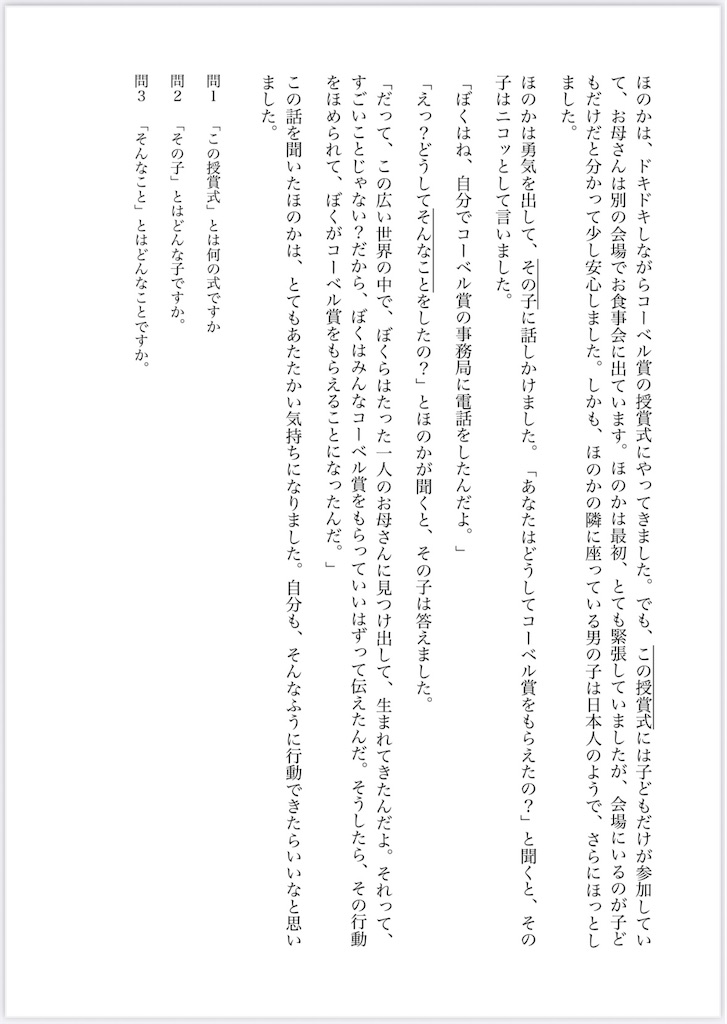 ほのかは、ドキドキしながらコーベル賞の授賞式にやってきました。でも、この授賞式には子どもだけが参加してい
て、お母さんは別の会場でお食事会に出ています。ほのかは最初、とても緊張していましたが、会場にいるのが子ど
もだけだと分かって少し安心しました。しかも、ほのかの隣に座っている男の子は日本人のようで、さらにほっとし
ました。
ほのかは勇気を出して、その子に話しかけました。「あなたはどうしてコーベル賞をもらえたの？」と聞くと、その
子はニコッとして言いました。
「ぼくはね、自分でコーベル賞の事務局に電話をしたんだよ。」
「えっ？どうしてそんなことをしたの？」とほのかが聞くと、その子は答えました。
「だって、この広い世界の中で、ぼくらはたった一人のお母さんに見つけ出して、生まれてきたんだよ。それって、
すごいことじゃない？だから、ぼくはみんなコーベル賞をもらっていいはずって伝えたんだ。そうしたら、その行動
をほめられて、ぼくがコーベル賞をもらえることになったんだ。」
この話を聞いたほのかは、とてもあたたかい気持ちになりました。自分も、そんなふうに行動できたらいいなと思い
ました。
問１　「この授賞式」とは何の式ですか
問２　「その子」とはどんな子ですか。
問３　「そんなこと」とはどんなことですか。